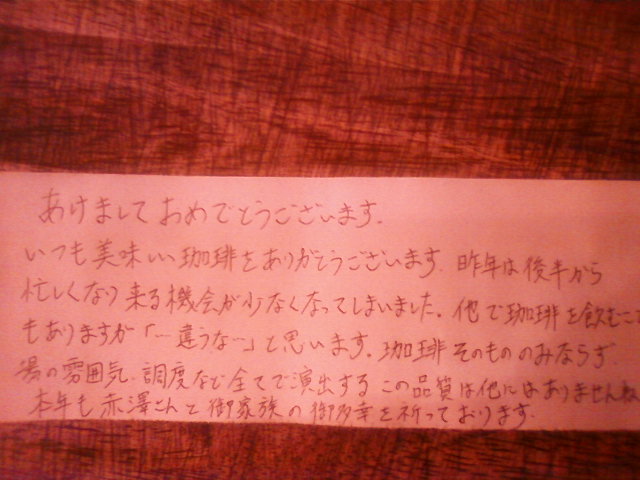 あけましておめでとうございます.
いつも美味しい珈琲をありがとうございます. 昨年は後半から
忙しくなり来る機会が少なくなってしまいました。他で珈琲を飲むこと
もありますが「…違うな…」と思います。珈琲そのもののみならず
場の雰囲気、調度など全てで演出するこの品質は他にはありませんね
本年も赤澤さんと御家族の御多幸を祈っております.